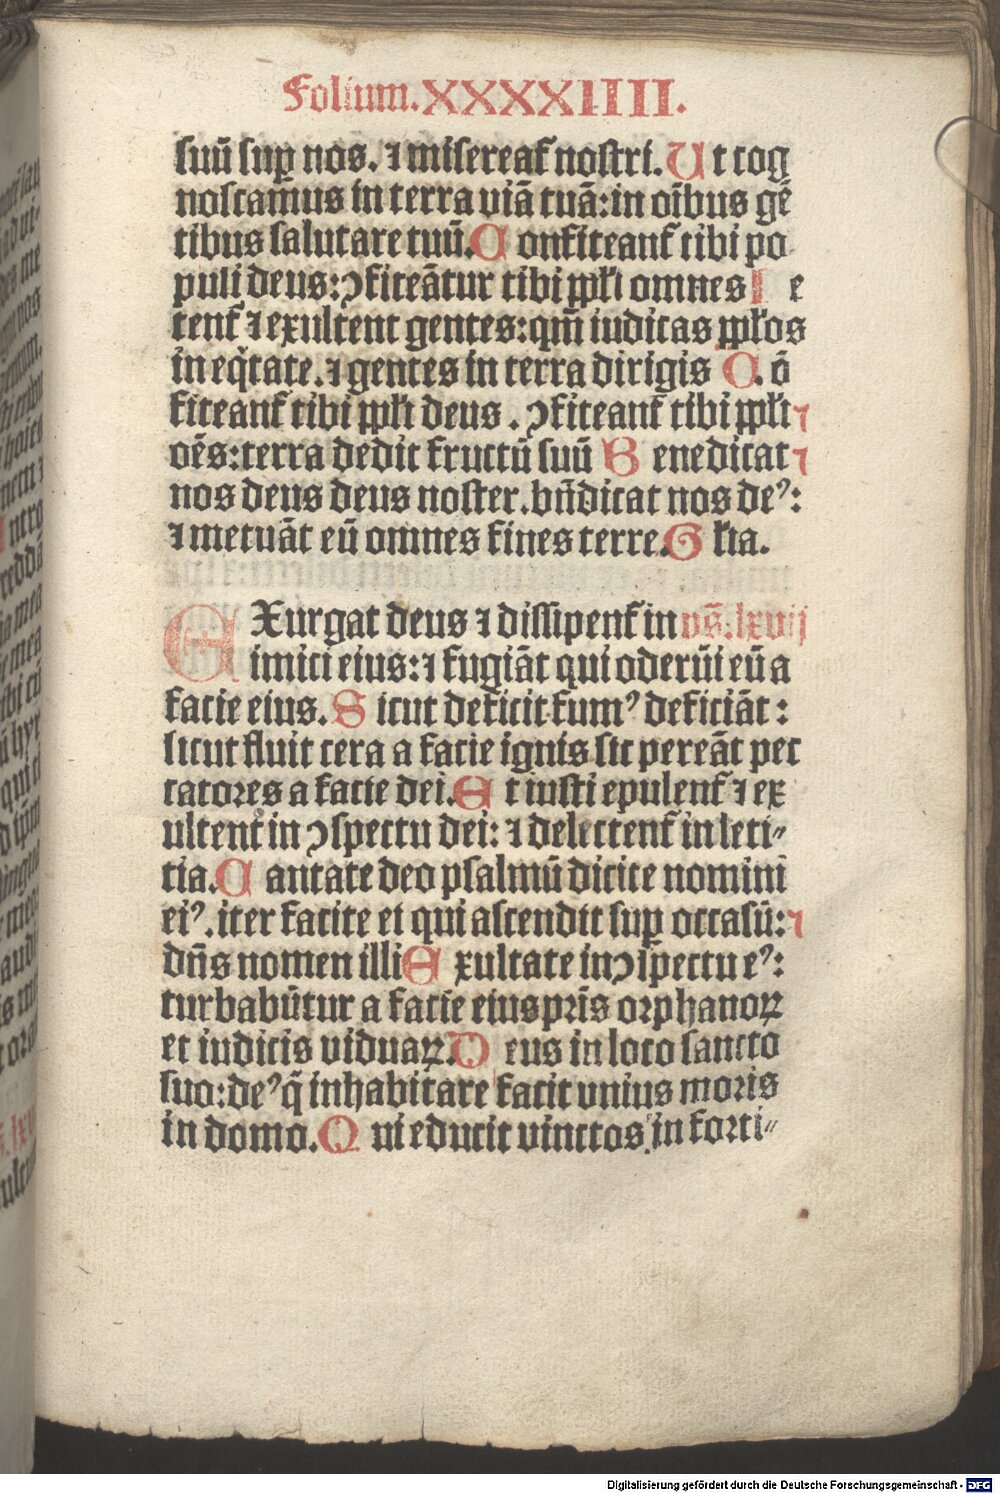 Folium.XXXXIIII.
suū suꝑ nos. ⁊ misereat᷑ nostri. Ut cog
noscamus in terra viā tuā: in oībus gē
tibus salutare tuū. Confiteant᷑ tibi po
puli deus: ꝯfiteātur tibi ppłi omnes Le
tent᷑ ⁊ exultent gentes: qm̄ iudicas ppłos
in eq̇tate. ⁊ gentes in terra dirigis C.ō
fiteant᷑ tibi ppłi deus. ꝯfiteant᷑ tibi ppłi ⁊
oēs: terra dedit fructū suū Benedicat ⁊
nos deus deus noster. bn̄dicat nos deꝰ:
⁊ metuāt eū omnes fines terre. Głia.
EXurgat deus ⁊ dissipent᷑ in ps̄. lxvij
imici eius: ⁊ fugiāt qui oderūt eū a
facie eius. Sicut deficit fumꝰ deficiāt:
sicut fluit cera a facie ignis sic pereāt pec
catores a facie dei. Et iusti epulent᷑ ⁊ ex
ultent᷑ in ꝯspectu dei: ⁊ delectent᷑ in leti⸗
tia. Cantate deo psalmū dicite nomini
eiꝰ. iter facite ei qui ascendit suꝑ occasū: ⁊
dn̄s nomen illi Exultate in ꝯspectu eꝰ:
turbabūtur a facie eius pr̄is orphanoꝝ
et iudicis viduaꝝ. Deus in loco sancto
suo: deꝰ q̄ inhabitare facit vnius moris
in domo. Qui educit vinctos in forti⸗
Digitalisierung gefördert durch die Deutsche Forschungsgemeinschaft - DFG